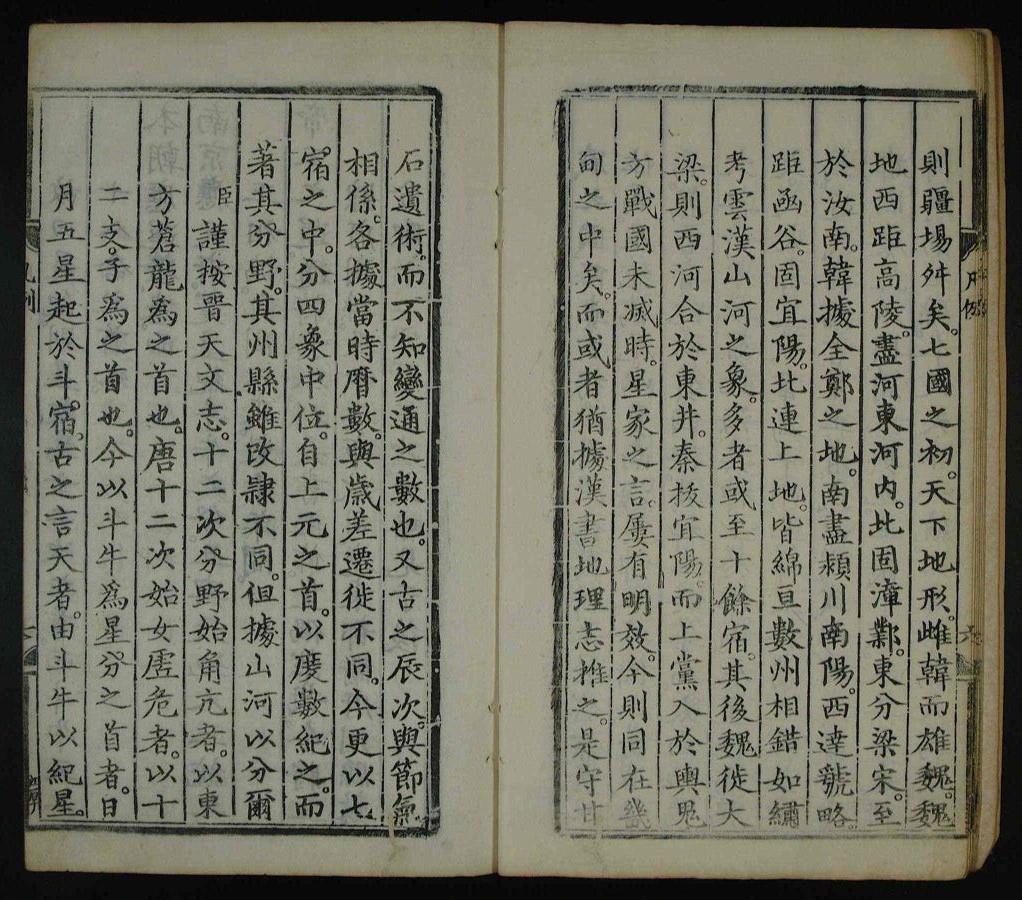 則疆場舛矣。七國之初。天下地形。雌韓而雄魏。魏
地西距高陵。盡河東河内。北固漳鄴。東分梁宋。至
於汝南。韓據全鄭之地。南盡潁川南陽。西達虢略。
距函谷。固宜陽。北連上地。皆綿亘數州相錯如繡
考雲漢山河之象。多者或至十餘宿。其後魏徙大
梁。則西河合於東井。秦拔宜陽。而上黨入於輿鬼
方戰國未滅時。星家之言。屢有明效。今則同在畿
甸之中矣。而或者猶據漢書地理志推之。是守甘
凡例
六
石遺術。而不知變通之數也。又古之辰次。與節氣
相係。各據當時曆數。與歲差遷徙不同。今更以七
宿之中。分四象中位。自上元之首。以度數紀之。而
著其分野。其州縣雖改隷不同。但據山河以分爾
臣謹按晋天文志。十二次分野始角亢者。以東
方蒼龍爲之首也。唐十二次始女虛危者。以十
二支。子爲之首也。今以斗牛爲星分之首者。日
月五星起於斗宿。古之言天者。由斗牛以紀星。